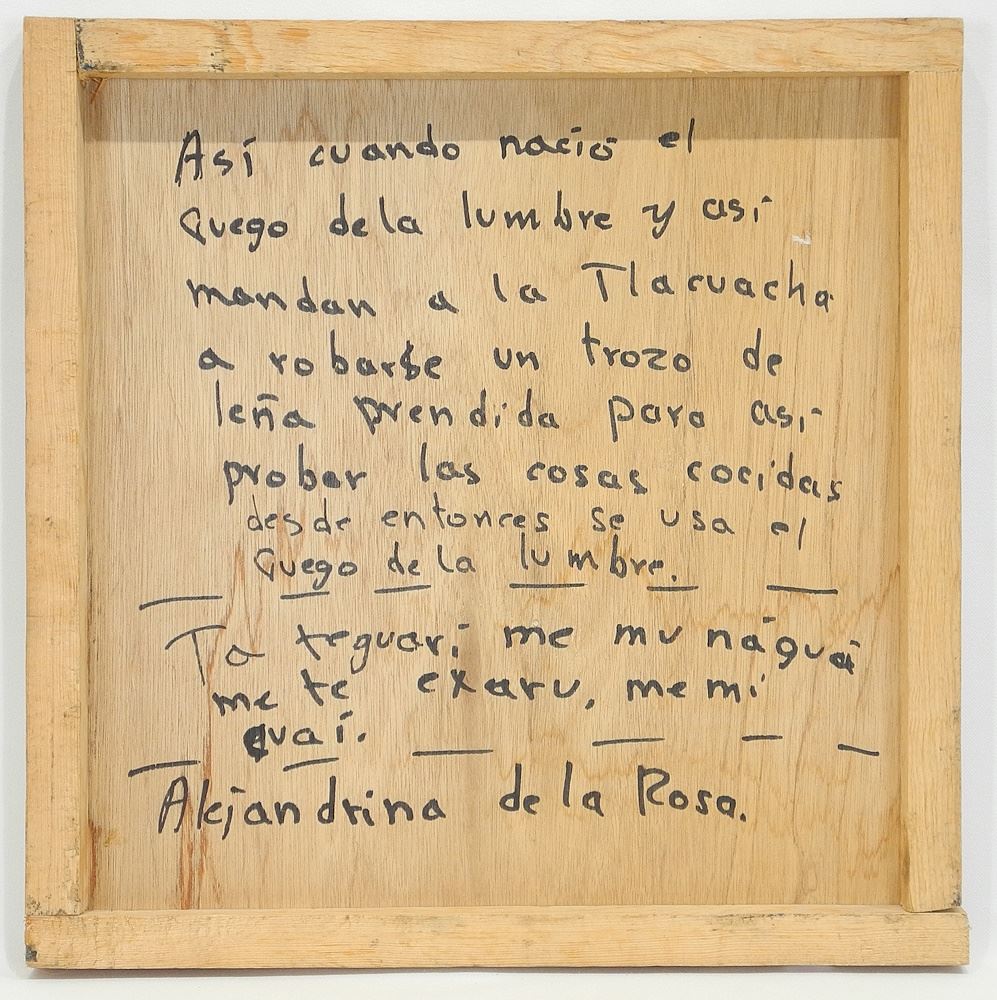 Así cuando nació el
Quego dela lumbre y así
mandan a la Tlacuacha
a robarse un trozo de
leña prendida para así
probar las cosas cocidas
desde entonces se usa el
Quego de la lumbre.
Ta teguari me mu náquá
me te exaru, me mi
quaí.
Alejandrina de la Rosa.